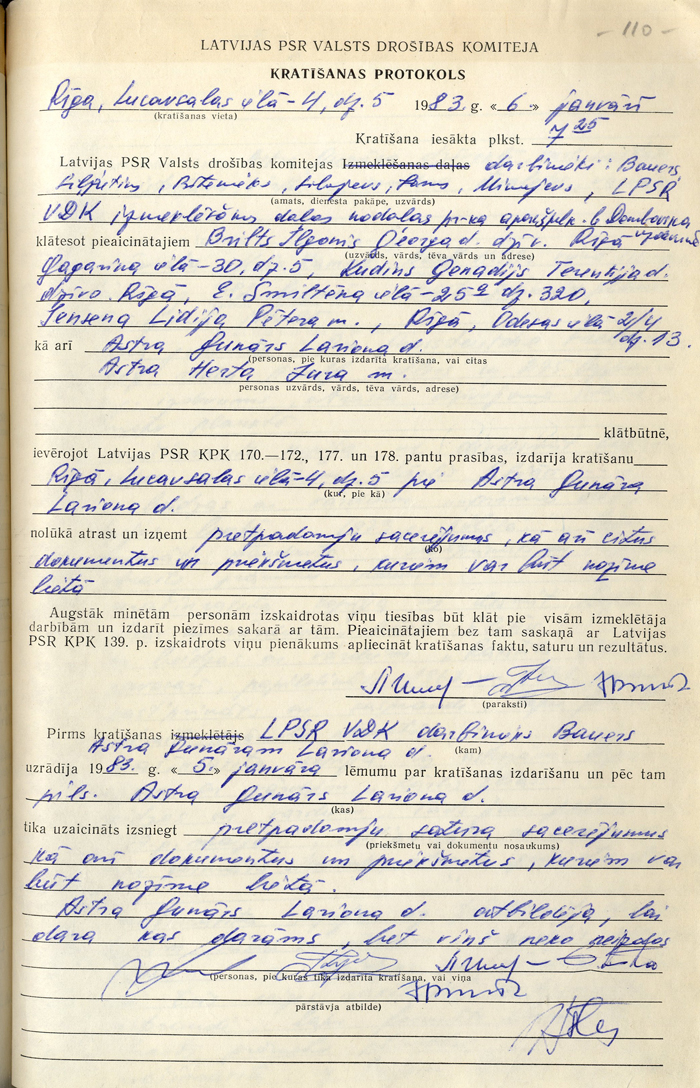 - 110 -
LATVIJAS PSR VALSTS DROŠĪBAS KOMITEJA
KRATĪŠANAS PROTOKOLS
Rīga, Lucavsalas ielā-4, dz. 5 1983. g. «6.» janvārī
(kratīšanas vieta)
Kratīšana iesākta plkst. 7 25
Latvijas PSR Valsts drošības komitejas Izmeklēšanas daļas darbinieki: Bauers
Minajevs, LPSR
(amats, dienesta pakāpe, uzvārds)
VDK izmeklēšanas daļas nodaļas pr-ka apakšplk.
klātesot pieaicinātajiem Brilts Ilgonis Georga d. dzīv. Rīgā
(uzvārds, vārds, tēva vārds un adrese)
Gagarina ielā-30, dz. 5, Kudins Genadijs Terentija d.
dzīvo Rīgā, E. Smiltēna ielā-25a dz. 320,
Lidija Pētera m., Rīgā, Odesas ielā 2/4
dz. 13.
kā arī Astra Gunārs Lariona d.
(personas, pie kuras izdarīta kratīšana, vai citas
Astra Herta Jura m.
personas uzvārds, vārds, tēva vārds, adrese)
klātbūtnē,
ievērojot Latvijas PSR KPK 170.—172., 177. un 178. pantu prasības, izdarīja kratīšanu
Rīgā, Lucavsalas ielā-4, dz. 5 pie Astra Gunāra
(kur, pie kā)
Lariona d.
nolūkā atrast un izņemt pretpadomju sacerējumus, kā arī citus
(ko)
dokumentus un priekšmetus, kuriem var būt nozīme
lietā
Augstāk minētām personām izskaidrotas viņu tiesības būt klāt pie visām izmeklētāja
darbībām un izdarīt piezīmes sakarā ar tām. Pieaicinātajiem bez tam saskaņā ar Latvijas
PSR KPK 139. p. izskaidrots viņu pienākums apliecināt kratīšanas faktu, saturu un rezultātus.
(paraksti)
Pirms kratīšanas izmeklētājs LPSR VDK darbinieks Bauers
Astra Gunāram Lariona d.
(kam)
uzrādīja 1983. g. «5.» janvāra lēmumu par kratīšanas izdarīšanu un pēc tam
pils. Astra Gunārs Lariona d.
(kas)
tika uzaicināts izsniegt pretpadomju satura sacerējumus
(priekšmetu vai dokumentu nosaukums)
kā arī dokumentus un priekšmetus, kuriem var
būt nozīme lietā.
Astra Gunārs Lariona d. atbildēja, lai
dara kas darāms, bet viņš neko neizdos
(personas, pie kuras tika izdarīta kratīšana, vai viņa
pārstāvja atbilde)